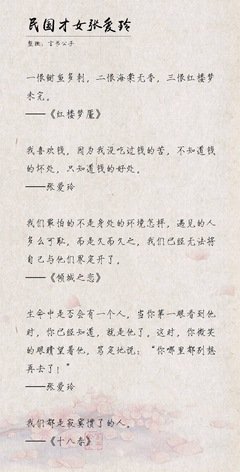 民国才女张爱玲
整理：言书公子
一恨鲥鱼多刺，二恨海棠无香，三恨红楼梦
未完。
——《红楼梦魇》
我喜欢钱，因为我没吃过钱的苦，不知道钱
的坏处，只知道钱的好处。
——张爱玲
我们最怕的不是身处的环境怎样，遇见的人
多么可耻，而是久而久之，我们已经无法将
自己与他们界定开了。
——《倾城之恋》
生命中是否会有一个人，当你第一眼看到他
时，你已经知道，就是他了。这时，你微笑
的眼睛望着他，笃定地说：“你哪里都别想
再去了！”
——张爱玲
我们都是寂寞惯了的人。
——《十八春》